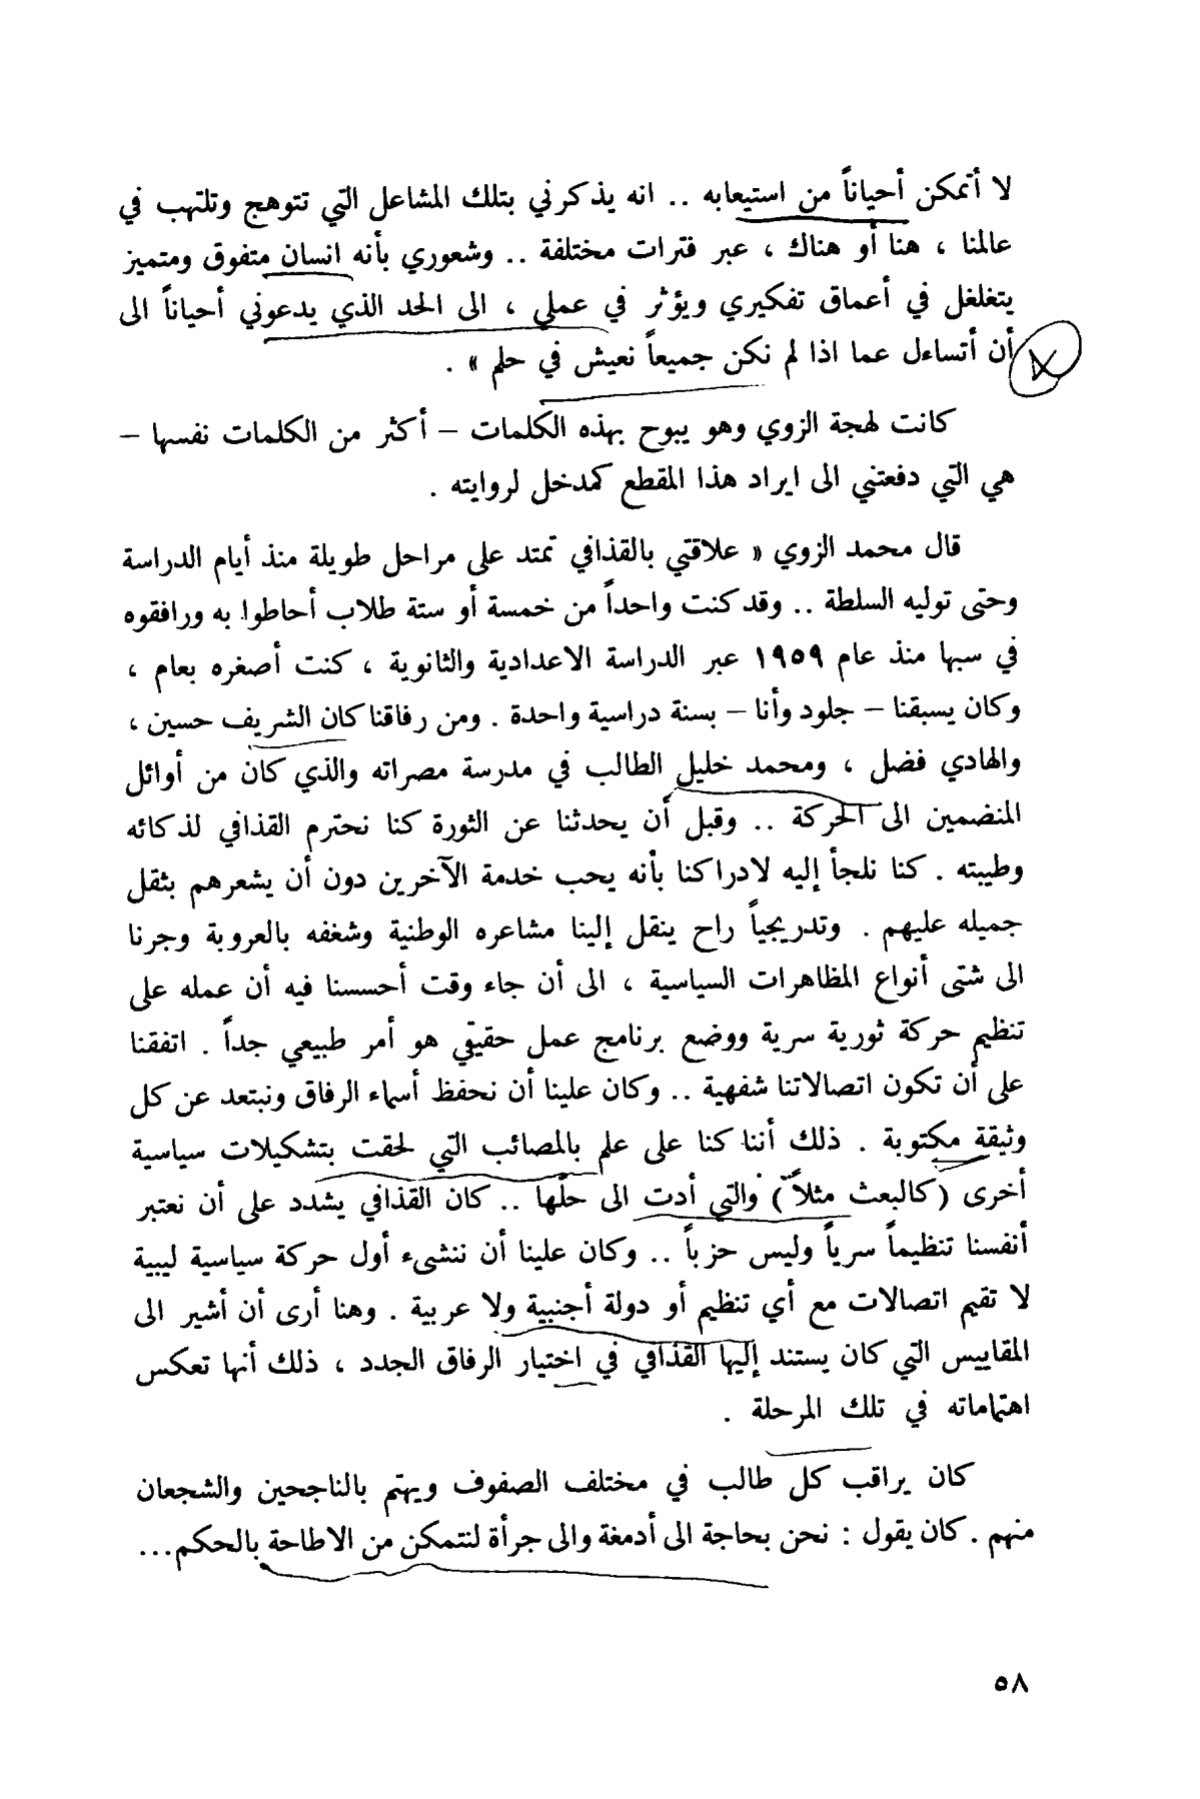 لا أتمكن أحياناً من استيعابه .. انه يذكرني بتلك المشاعل التي تتوهج وتلتهب في
عالمنا ، هنا أو هناك ، عبر فترات مختلفة .. وشعوري بأنه انسان متفوق ومتميز
يتغلغل في أعماق تفكيري ويؤثر في عملي ، الى الحد الذي يدعوني أحياناً الى
أن أتساءل عما اذا لم نكن جميعاً نعيش في حلم » .
كانت لهجة الزوي وهو يبوح بهذه الكلمات – أكثر من الكلمات نفسها –
هي التي دفعتني الى ايراد هذا المقطع كمدخل لروايته .
قال محمد الزوي « علاقتي بالقذافي تمتد على مراحل طويلة منذ أيام الدراسة
وحتى توليه السلطة .. وقد كنت واحداً من خمسة أو ستة طلاب أحاطوا به ورافقوه
في سبها منذ عام ١٩٥٩ عبر الدراسة الاعدادية والثانوية ، كنت أصغره بعام ،
وكان يسبقنا – جلود وأنا – بسنة دراسية واحدة . ومن رفاقنا كان الشريف حسين ،
والهادي فضل ، ومحمد خليل الطالب في مدرسة مصراته والذي كان من أوائل
المنضمين الى الحركة .. وقبل أن يحدثنا عن الثورة كنا نحترم القذافي لذكائه
وطيبته . كنا نلجأ إليه لادراكنا بأنه يحب خدمة الآخرين دون أن يشعرهم بثقل
جميله عليهم . وتدريجياً راح ينقل إلينا مشاعره الوطنية وشغفه بالعروبة وجرنا
الى شتى أنواع المظاهرات السياسية ، الى أن جاء وقت أحسسنا فيه أن عمله على
تنظيم حركة ثورية سرية ووضع برنامج عمل حقيقي هو أمر طبيعي جداً . اتفقنا
على أن تكون اتصالاتنا شفهية .. وكان علينا أن نحفظ أسماء الرفاق ونبتعد عن كل
وثيقة مكتوبة . ذلك أننا كنا على علم بالمصائب التي لحقت بتشكيلات سياسية
أخرى (كالبعث مثلاً) والتي أدت الى حلّها .. كان القذافي يشدد على أن نعتبر
أنفسنا تنظيماً سرياً وليس حزباً .. وكان علينا أن ننشىء أول حركة سياسية ليبية
لا تقيم اتصالات مع أي تنظيم أو دولة أجنبية ولا عربية . وهنا أرى أن أشير الى
المقاييس التي كان يستند إليها القذافي في اختيار الرفاق الجدد ، ذلك أنها تعكس
اهتماماته في تلك المرحلة .
كان يراقب كل طالب في مختلف الصفوف ويهتم بالناجحين والشجعان
منهم . كان يقول : نحن بحاجة الى أدمغة والى جرأة لنتمكن من الاطاحة بالحكم...
٥٨